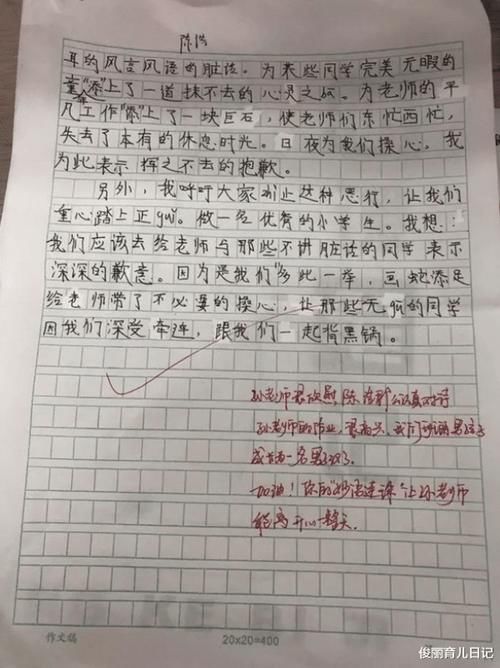 陈浩
耳的风言风语的脏话。为某些同学完美无暇的
童年"添"上了一道抹不去的心灵之疤。为老师的平
凡工作"添"上了一块巨石，使老师们东忙西忙，
失去了本有的休息时光。日夜为我们操心。我
为此表示挥之不去的抱歉。
另外，我呼吁大家制止这种恶行，让我们
重心踏上正gui。做一名优秀的小学生。我想：
我们应该去给老师与那些不讲脏话的同学表示
深深的歉意。因为是我们"多此一举，画蛇添足
给老师带了不必要的操心，让那些无gu的同学
因我们深受牵连，跟我们一起背黑锅。
孙老师很欣慰，陈浩能认真对待
孙老师的作业，很高兴，我们班
成长为一名男子汉了。
加油！你的"妙语连珠"让孙老师
能高开心一整天。
作文稿
20×20=400
俊丽育儿日记